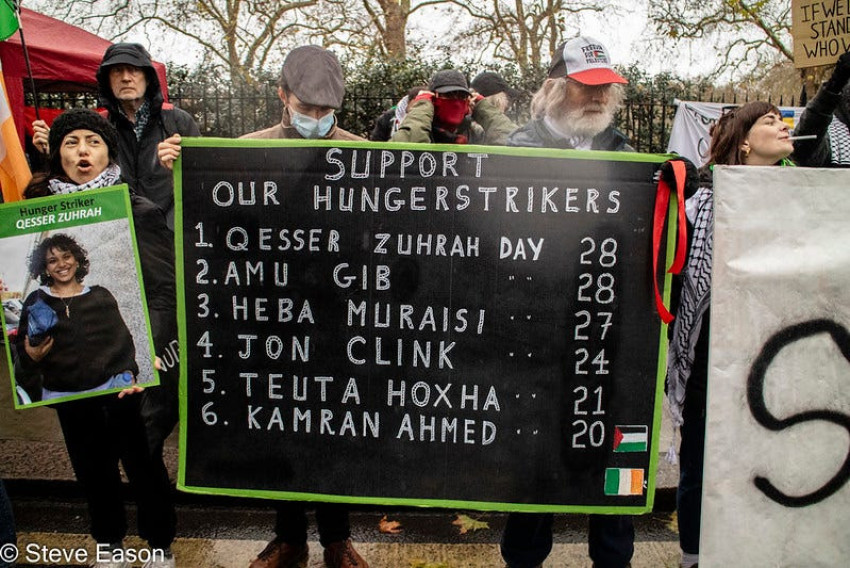 IF WE
STAND
WHO W
Hunger Striker
QESSER ZUHRAH
SUPPORT
OUR HUNGERSTRIKERS
1. QESSER ZUHRAH DAY 28
2. AMU GIB " 28
3. HEBA MURAISI " 27
4. JON CLINK " 24
5. TEUTA HOXHA " 21
6. KAMRAN AHMED " 20
S
© Steve Eason